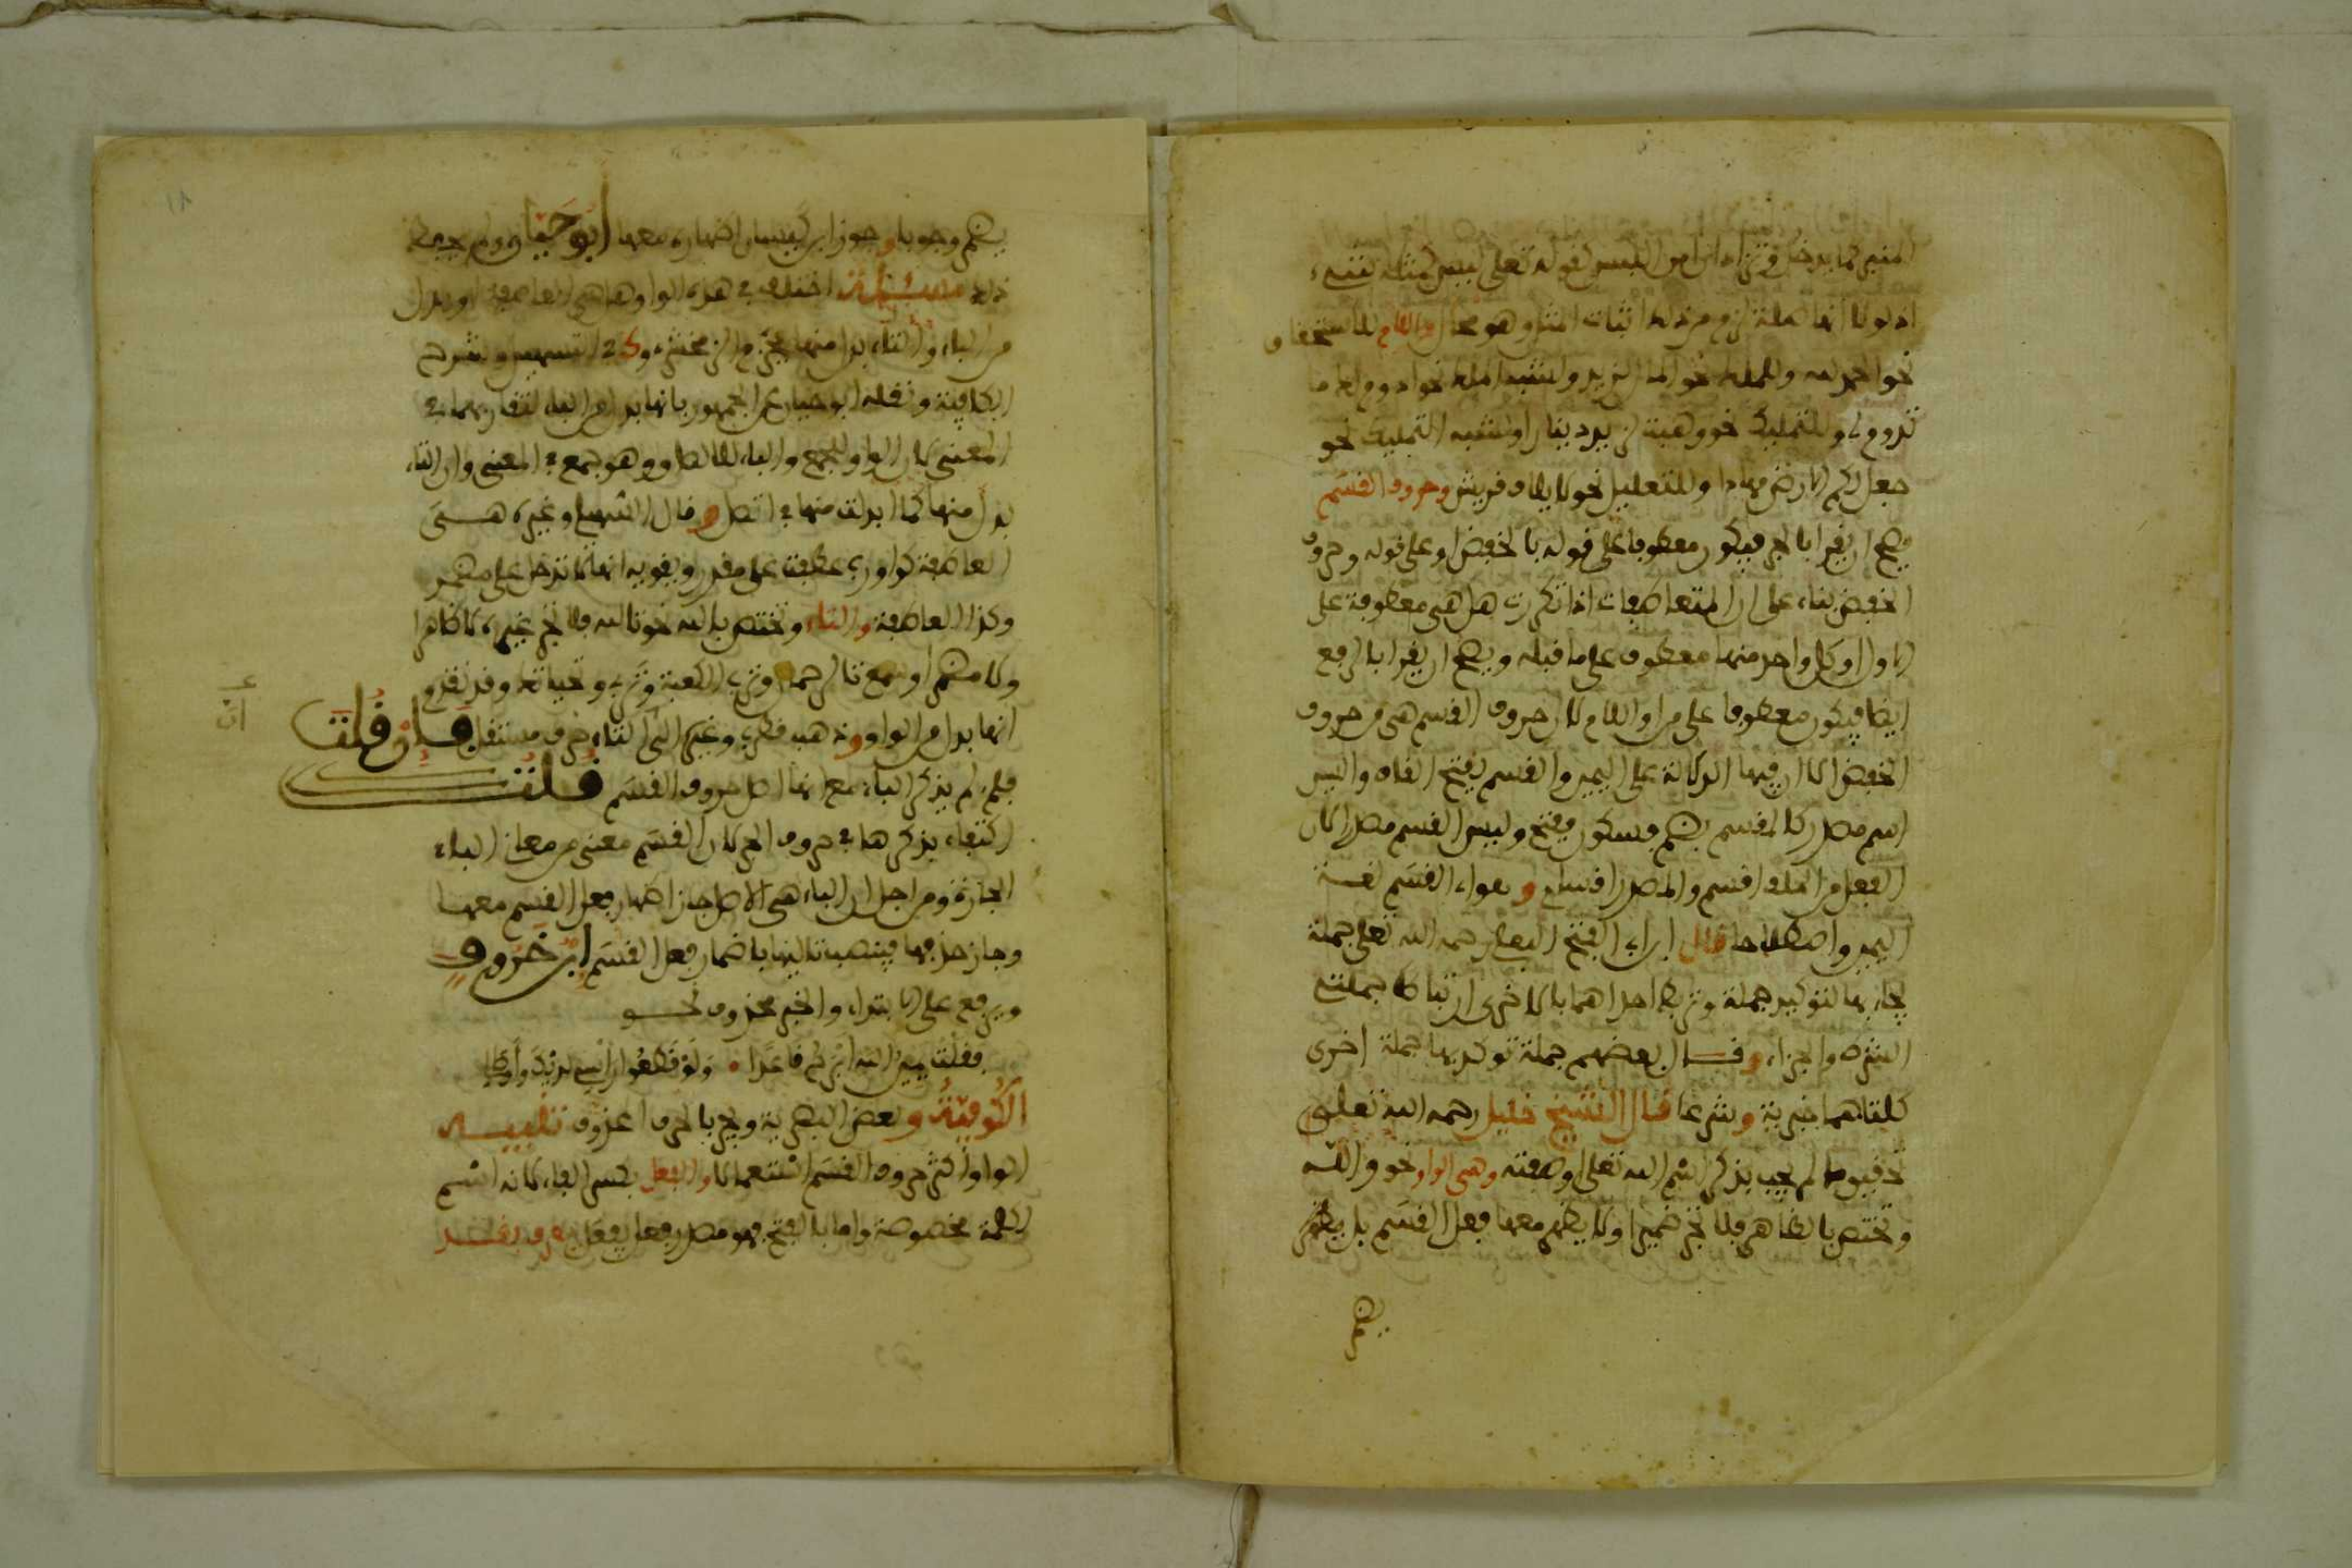 اذ لو لا انها صلة لزم من ذلك اثبات المثل وهو محال واللام للاستحقاق
نحو الحمد لله وللملك نحو المال لزيد ولشبه الملك نحو ادوم لك ما
تدوم لي وللتمليك نحو وهبت لزيد دينارا ولشبه التمليك نحو
جعل لكم الارض مهادا وللتعليل نحو لايلاف قريش وحروف القسم
يصح ان يقرا بالجر فيكون معطوفا على قوله بالخفض او على قوله وحروف
الخفض بناء على ان المتعاطفات اذا تكررت هل هي معطوفة على
الاول او كل واحد منها معطوف على ما قبله ويصح ان يقرا بالرفع
ايضا فيكون معطوفا على من او اللام لان حروف القسم هي من حروف
الخفض الا ان فيها الدلالة على اليمين والقسم بفتح القاف والسين
اسم مصدر كالمقسم بضم فسكون ففتح وليس القسم مصدرا لان
الفعل من الحلف اقسم والمصدر اقسام و القسم لغة
اليمين واصطلاحا قال ابن ابي الفتح البعلي رحمه الله تعلى جملة
يجاء بها لتوكيد جملة وتربط احداهما بالاخرى ارتباط جملتي
الشرط والجزاء وقال بعضهم جملة توكد بها جملة اخرى
كلتاهما خبرية وشرعا قال الشيخ خليل رحمه الله تعلى
تحقيق ما لم يجب بذكر اسم الله تعلى او صفته وهي الواو نحو والله
وتختص بالظاهر فلا تجر ضميرا ولا يظهر معها فعل القسم بل يضمر
يضمر
يضمر وجوبا وجوز ابن كيسان اظهاره معها ابو حيان ولم يحفظ
ذلك اختلف في هذه الواو هل هي العاطفة او بدل
من الباء والتاء بدل منها جزم الزمخشري وك في التسهيل وشرح
الكافية ونقله ابو حيان عن الجمهور بانها بدل من الباء لتقاربهما في
المعنى لان الواو للجمع والباء للالصاق وهو جمع في المعنى وان التاء
بدل منها كما ابدلت منها في اتصل وقال السهيلي وغيره هي
العاطفة كواو رب عطفت على مقدر ويقويه انها لا تدخل على مضمر
وكذا العاطفة والتاء وتختص بالله نحو تالله فلا تجر غيره لا ظاهرا
ولا مضمرا وسمع تالرحمن وترب الكعبة وتربي وتحياتك وقد تقدم
انها بدل من الواو وذهب قطرب وغيره الى ان التاء حرف مستقل فان قلت
فلم لم يذكر الباء مع انها اصل حروف القسم قلت
اكتفاء بذكرها في حروف الجر لان القسم معنى من معاني الباء
الجارة ومن اجل ان الباء هي الاصل جاز اظهار فعل القسم معها
وجاز حذفها فينصب تاليها باضمار فعل القسم ابن خروف
ويرفع على الابتداء والخبر محذوف نحو
فقلت يمين الله ابرح قاعدا • ولو قطعوا راسي لديك واوصالي
الكوفية وبعض البصرية ويجر بالحرف المحذوف تنبيه
الواو اكثر حروف القسم استعمالا والفعل بكسر الفاء لانه اسم
لكلمة مخصوصة واما بالفتح فهو مصدر فعل يفعل يعرف بقد